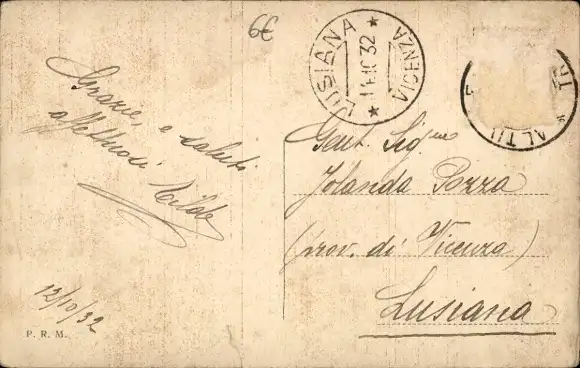 6€
LUSIANA
VICENZA
Grazie, e saluti
affettuosi Tilde
12/10/32
P. R. M.
Gent. Sig.na
Jolanda Pozza
(prov. di Vicenza)
Lusiana